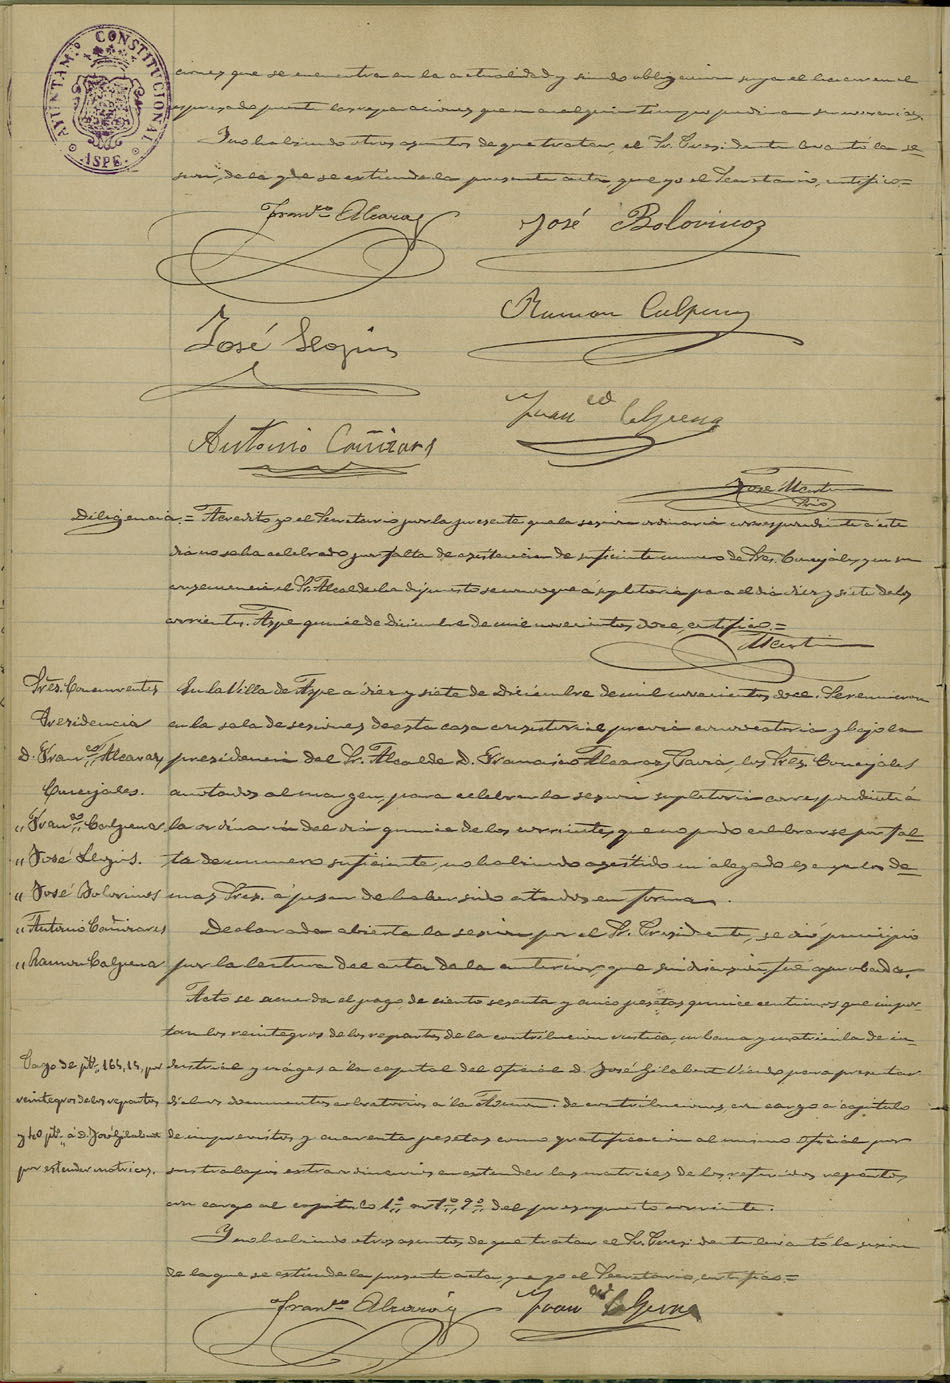 AYUNTAM.º CONSTITUCIONAL
ASPE.
ciones que se encuentra en la actualidad y siendo obligacion suya el hacer en el
expresado puente las reparaciones que en cualquier tiempo pudieran ser necesarias.
Y no habiendo otros asuntos de que tratar, el Sr. Presidente levantó la se-
sion, de la que se extiende la presente acta que yo el Secretario, certifico=
Franco Alcaraz
José Bolovinos
Ramon Calpena
José Seogin
Franco Calpena
Antonio Cañizares
José Martin
Srio
Diligencia.= Acredito yo el Secretario por la presente que la sesion ordinaria correspondiente á este
dia no se ha celebrado por falta de asistencia de suficiente numero de Sres. Concejales, y en su
consecuencia el Sr. Alcalde ha dispuesto se convoque á supletoria para el dia diez y siete de los
corrientes. Aspe quince de Diciembre de mil novecientos doce, certifico=
Martin
Sres. Concurrentes
Presidencia
D. Franco Alcaraz
Concejales.
" Franco Calpena
" José
" José Bolovinos
" Antonio Cañizares
" Ramon Calpena
En la Villa de Aspe a diez y siete de Diciembre de mil novecientos doce. Se reunieron
en la sala de sesiones de esta casa consistorial previa convocatoria y bajo la
presidencia del Sr. Alcalde D. Francisco Alcaraz Pavia, los Sres. Concejales
anotados al margen para celebrar la sesion supletoria correspondiente á
la ordinaria del dia quince de los corrientes, que no pudo celebrarse por fal-
ta de numero suficiente, no habiendo asistido ni alegado escusa los de-
mas Sres. á pesar de haber sido citados en forma.
Declarada abierta la sesion por el Sr. Presidente, se dió principio
por la lectura del acta de la anterior, que sin discusion fué aprobada.
Acto se acuerda el pago de ciento sesenta y cinco pesetas quince centimos que impor-
tan los reintegros de los repartos de la contribucion rustica, urbana y matricula de in-
dustrial y viages á la capital del oficial D. José Gilabert para presentar
dichos documentos cobratorios a la Admon. de contribuciones, con cargo a capitulo
de imprevistos y cuarenta pesetas como gratificacion al mismo Oficial por
sus trabajos extraordinarios en extender las matrices de los referidos repartos
con cargo al capitulo 1º art. del presupuesto corriente.
Pago de pts. 165,15, por
reintegros de los repartos
y 40 pts. á D. José Gilabert
por extender matrices.
Y no habiendo otros asuntos de que tratar el Sr. Presidente levantó la sesion
de la que se extiende la presente acta que yo el Secretario, certifico=
Franco Alcaraz
Franco Calpena